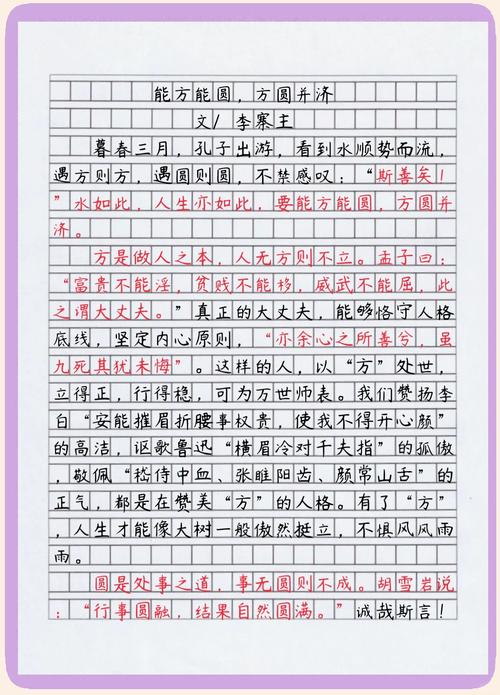 能方能圆，方圆并济
文/ 李寨主
暮春三月，孔子出游，看到水顺势而流，
遇方则方，遇圆则圆，不禁感叹：“斯善矣！
”水如此，人生亦如此，要能方能圆，方圆并
济。
方是做人之本，人无方则不立。孟子曰：
“富贵不能淫，贫贱不能移，威武不能屈，此
之谓大丈夫。”真正的大丈夫，能够恪守人格
底线，坚定内心原则，“亦余心之所善兮，虽
九死其犹未悔”。这样的人，以“方”处世，
立得正，行得稳，可为万世师表。我们赞扬李
白“安能摧眉折腰事权贵，使我不得开心颜”
的高洁，讴歌鲁迅“横眉冷对千夫指”的孤傲
，敬佩“嵇侍中血、张睢阳齿、颜常山舌”的
正气，都是在赞美“方”的人格。有了“方”
，人生才能像大树一般傲然挺立，不惧风风雨
雨。
圆是处事之道，事无圆则不成。胡雪岩说
：“行事圆融，结果自然圆满。”诚哉斯言！